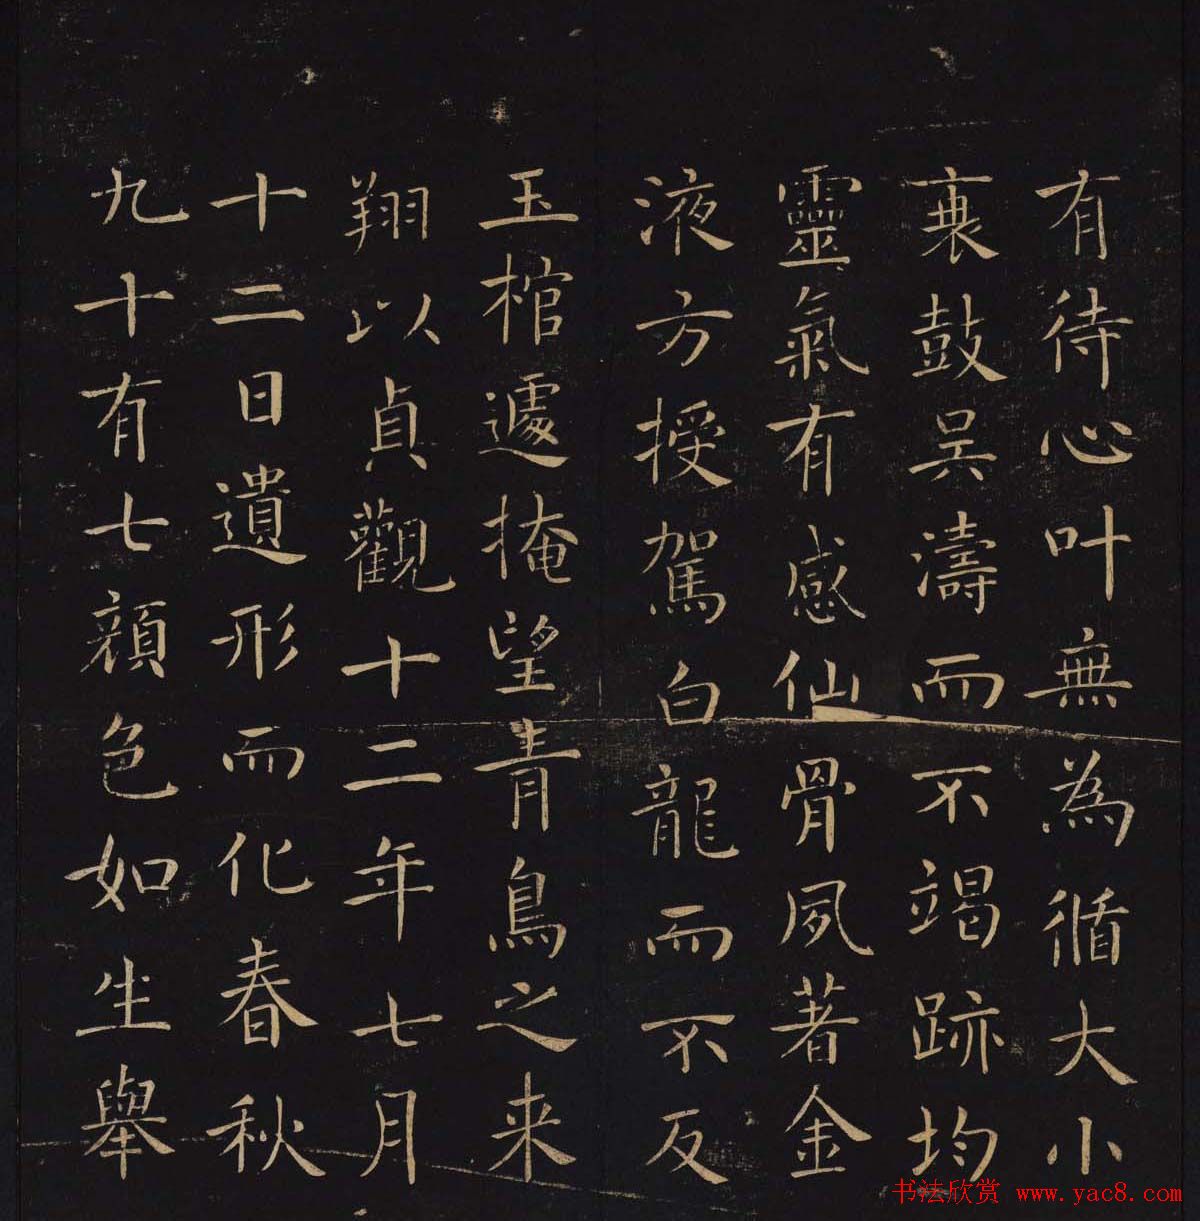 有待心叶無為循大小
鼓吴濤而不竭跡均
靈氣有感仙骨夙著金
液方授駕白龍而不反
玉棺遽掩望青鳥之来
翔以貞觀十二年七月
十二日遺形而化春秋
九十有七顔色如生舉
书法欣赏 www.yac8.com